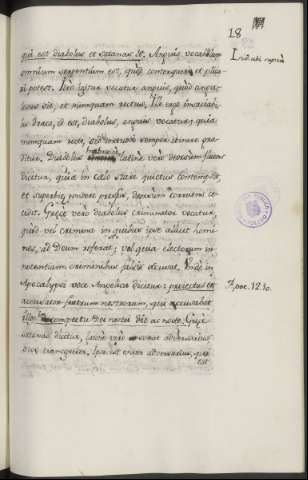 18
qui est diabolus et satanas &c. Anguis vocabulum
omnium serpentium est, quòd contorqueri et plica-
ri potest. Dra igitur vocatur anguis, quòd angu-
losus sit, et nunquam rectus. Ille ergo
draco, id est, diabolus, anguis vocatur; quia
nunquam recte, sed tortuosè semper
ditur. Diabolus latinè verò deorsum fluens
dicitur, quia in cælo stare quietus contempsit,
et superbiæ pondere pressus, deorsum corruens ce-
cidit. Græcè verò diabolus criminator vocatur,
quòd vel crimina in quibus ipse allicit homi-
nes, ad Deum referat; vel quia electorum in-
nocentiam criminibus fictis accusat. Unde in
Apocalypsi voce Angelica dicitur: projectus est
accusator fratrum nostrorum, qui accusabat
illos in conspectu Dei nostri die ac nocte.
satanas dicitur, latinè verò sonat adversarius
sive transgressor. Ipse est enim adversarius, qui
est
Isid. ubi supra
Apoc. 12. 10.